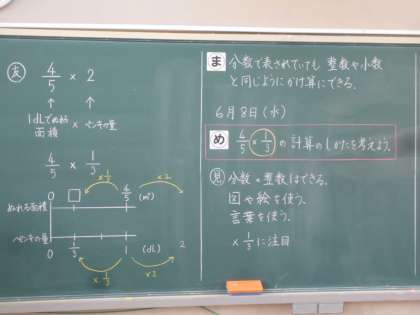 友
4/5 × 2
1dLでぬれる面積 × ペンキの量
4/5 × 1/3
×1/3 ×2
0 □ 4/5 (m²)
ぬれる面積
ペンキの量
0 1/3 1 (dL) 2
×1/3 ×2
ま 分数で表されていても 整数や小数
と同じようにかけ算にできる。
6月8日(水)
め 4/5 × 1/3 の計算のしかたを考えよう。
見 分数×整数はできる。
図や絵を使う。
言葉を使う。
×1/3に注目